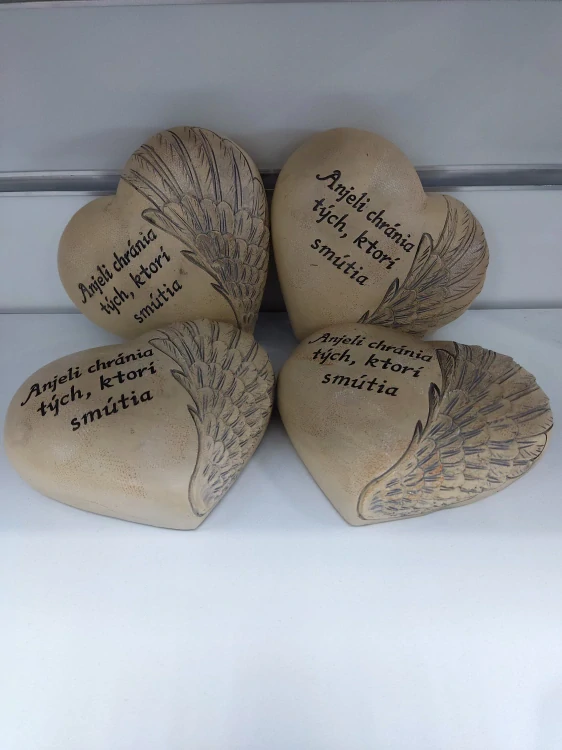 Anjeli chránia
tých, ktorí
smútia
Anjeli chránia
tých, ktorí
smútia
Anjeli chránia
tých, ktorí
smútia
Anjeli chránia
tých, ktorí
smútia